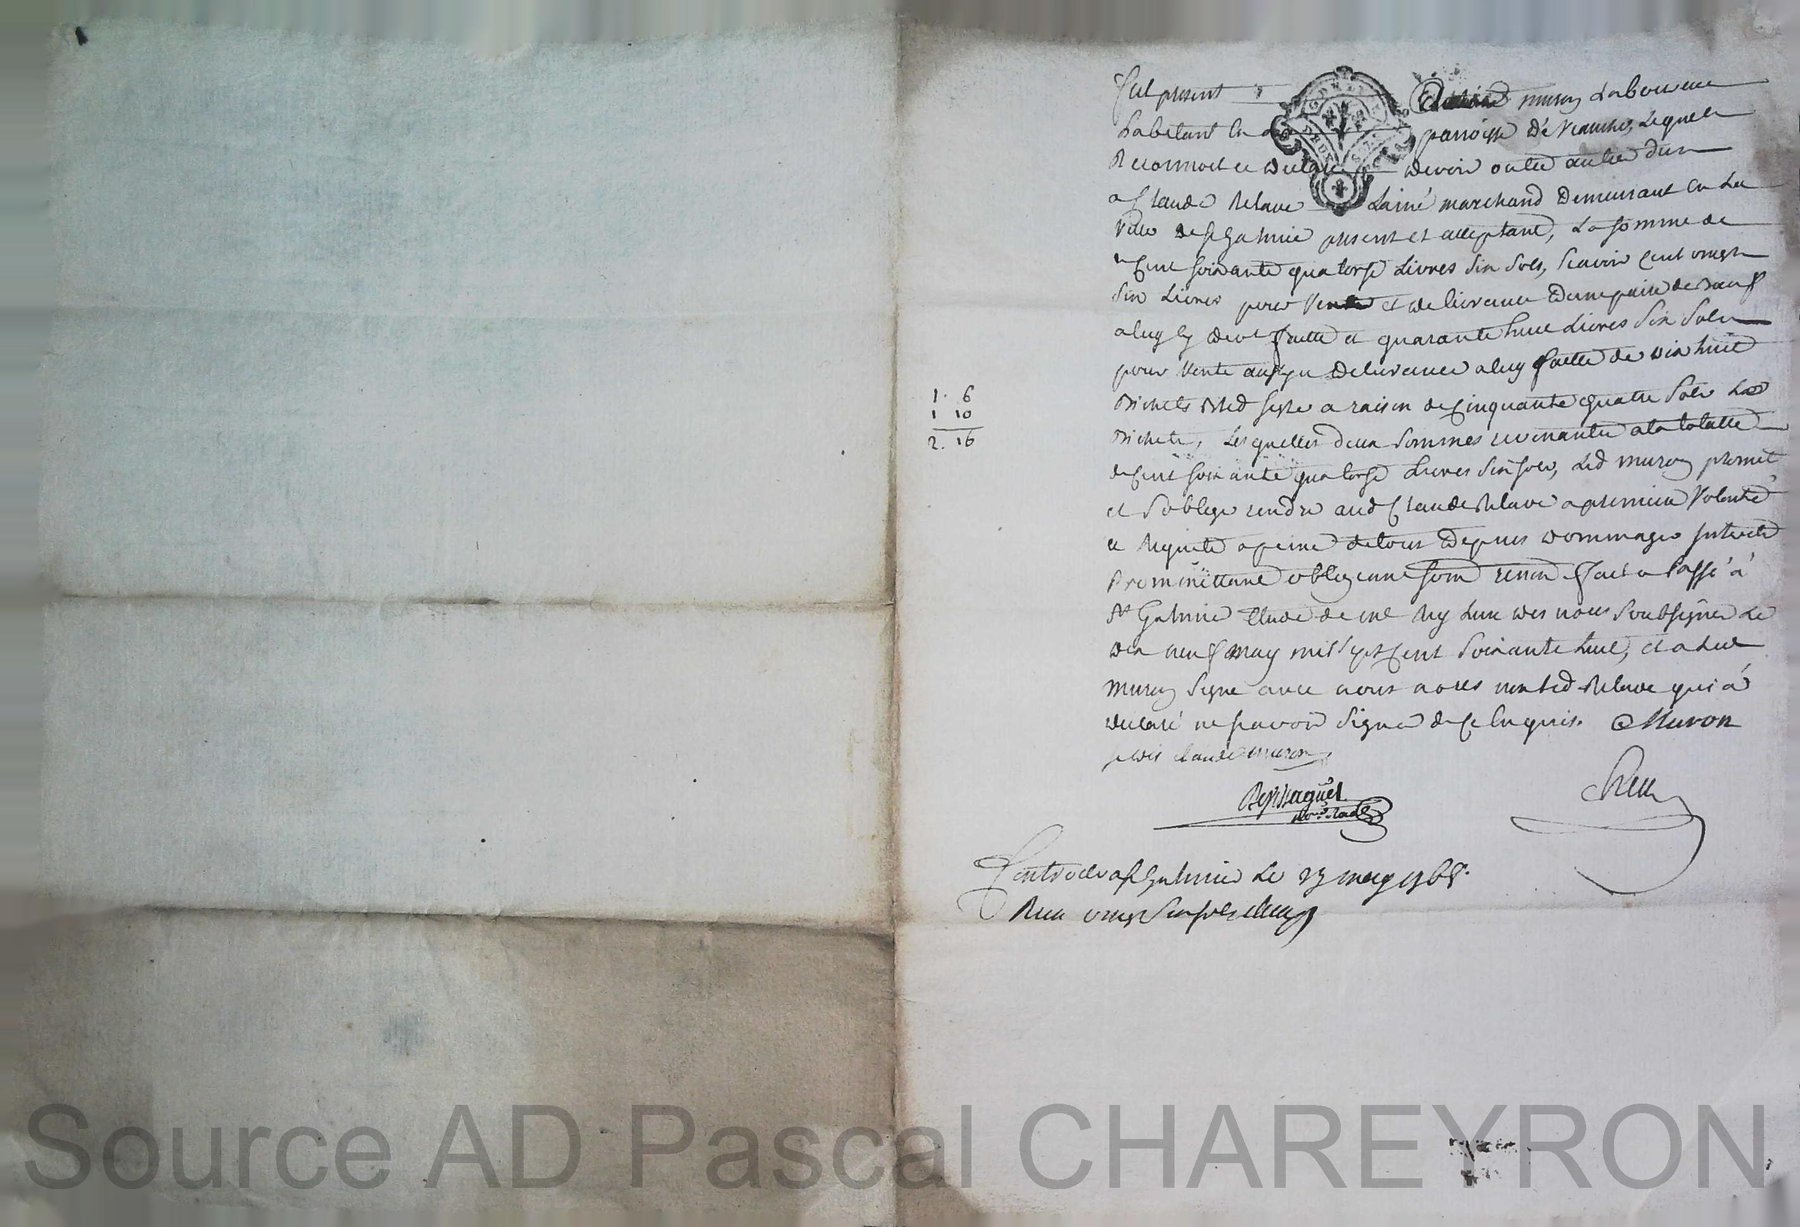 Fut present muron Laboureur
habitant en parroisse de Veauche, Lequel
Reconnoit et declare devoir outre autre dun
a Claude Relave Lainé marchand Demeurant en La
Ville de St Galmier present et acceptant, La somme de
cent soixante quatorse Livres six sols, scavoir cent vingt
six Livres pour Vente et delivrance dune paire de Bœufs
a luy cy devt faitte et quarante huit Livres six sols
pour Vente aussy et Delivrance a luy faitte de dix huit
Bichets Bled segle a raison de cinquante quatre sols Led
Bichets, Lesquelles deux sommes revenantes a la totalle
de cent soixante quatorse Livres six sols, Led muron promet
et soblige rendre aud Claude Relave a premiere Volonté
et Requete a peine de tous Depens dommages Interets
Promettant obligeant soum renon fait et Passé à
St Galmier Etude de me Rey Lun des nous soubsignés Le
dix neuf may mil sept cent soixante huit, et a Led
muron signé avec nous nores non Led Relave qui à
declaré ne scavoir signer de ce Enquis. C Muron
je dis claude muron
Rey
Controlé a St Galmier Le 23 may 1768.
Reçu vingt six sols
1. 6
1 10
2. 16
Source AD Pascal CHAREYRON